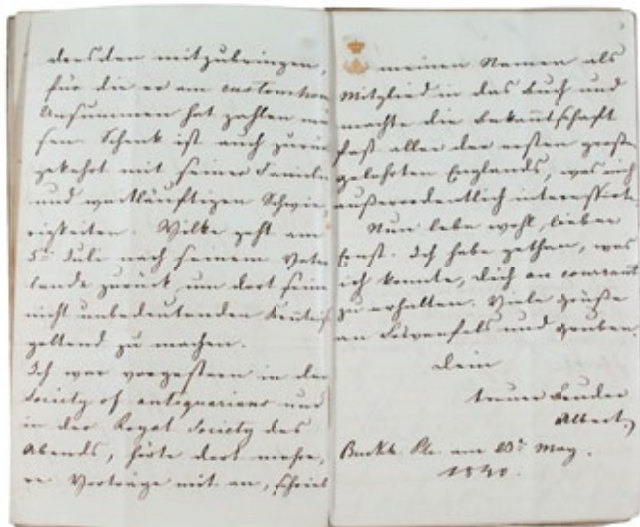 dresden mitzubringen,
für die er am customhouse
Unsummen hat zahlen müs
sen. Schenk ist auch zurück
gekehrt mit seiner Familie
und weitläuftigen Schwie
rigkeiten. Wilke geht am
5t Juli nach seinem Vater
lande zurück, um dort seine
nicht unbedeutenden Kenntniss
geltend zu machen.
Ich war vorgestern in der
Society of antiquarians und
in der Royal Society des
Abends, hörte dort mehre,
re Vorträge mit an, schrieb
meinen Namen als
Mitglied in das Buch und
machte die Bekanntschaft
fast aller der ersten großen
gelehrten Englands, was mich
außerordentlich interessirte.
Nun lebe wohl, lieber
Ernst. Ich habe gethan, was
ich konnte, dich au courant
zu erhalten. Viele Grüße
an Löwenfels und Gruben.
Dein
treuer Bruder
Albert
Buckh. Plc. am May.
1840.